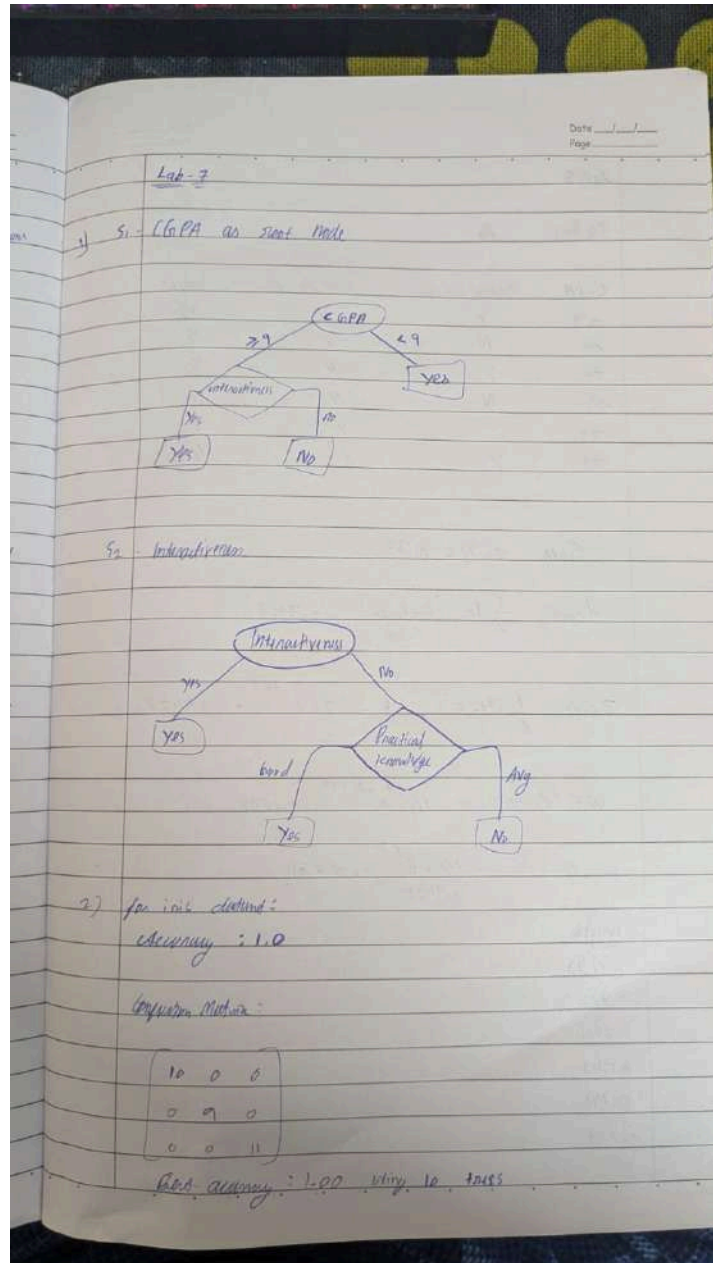 Date __/__/__
Page
Lab-7
1) S1 - CGPA as root node
CGPA
≥9 <9
interactiveness Yes
Yes no
Yes No
S2 - Interactiveness
Interactiveness
Yes No
Yes Practical
knowledge
Good Avg
Yes No
2) for iris dataset:
Accuracy : 1.0
Confusion Matrix:
10 0 0
0 9 0
0 0 11
Best accuracy : 1.00 using 10 trees